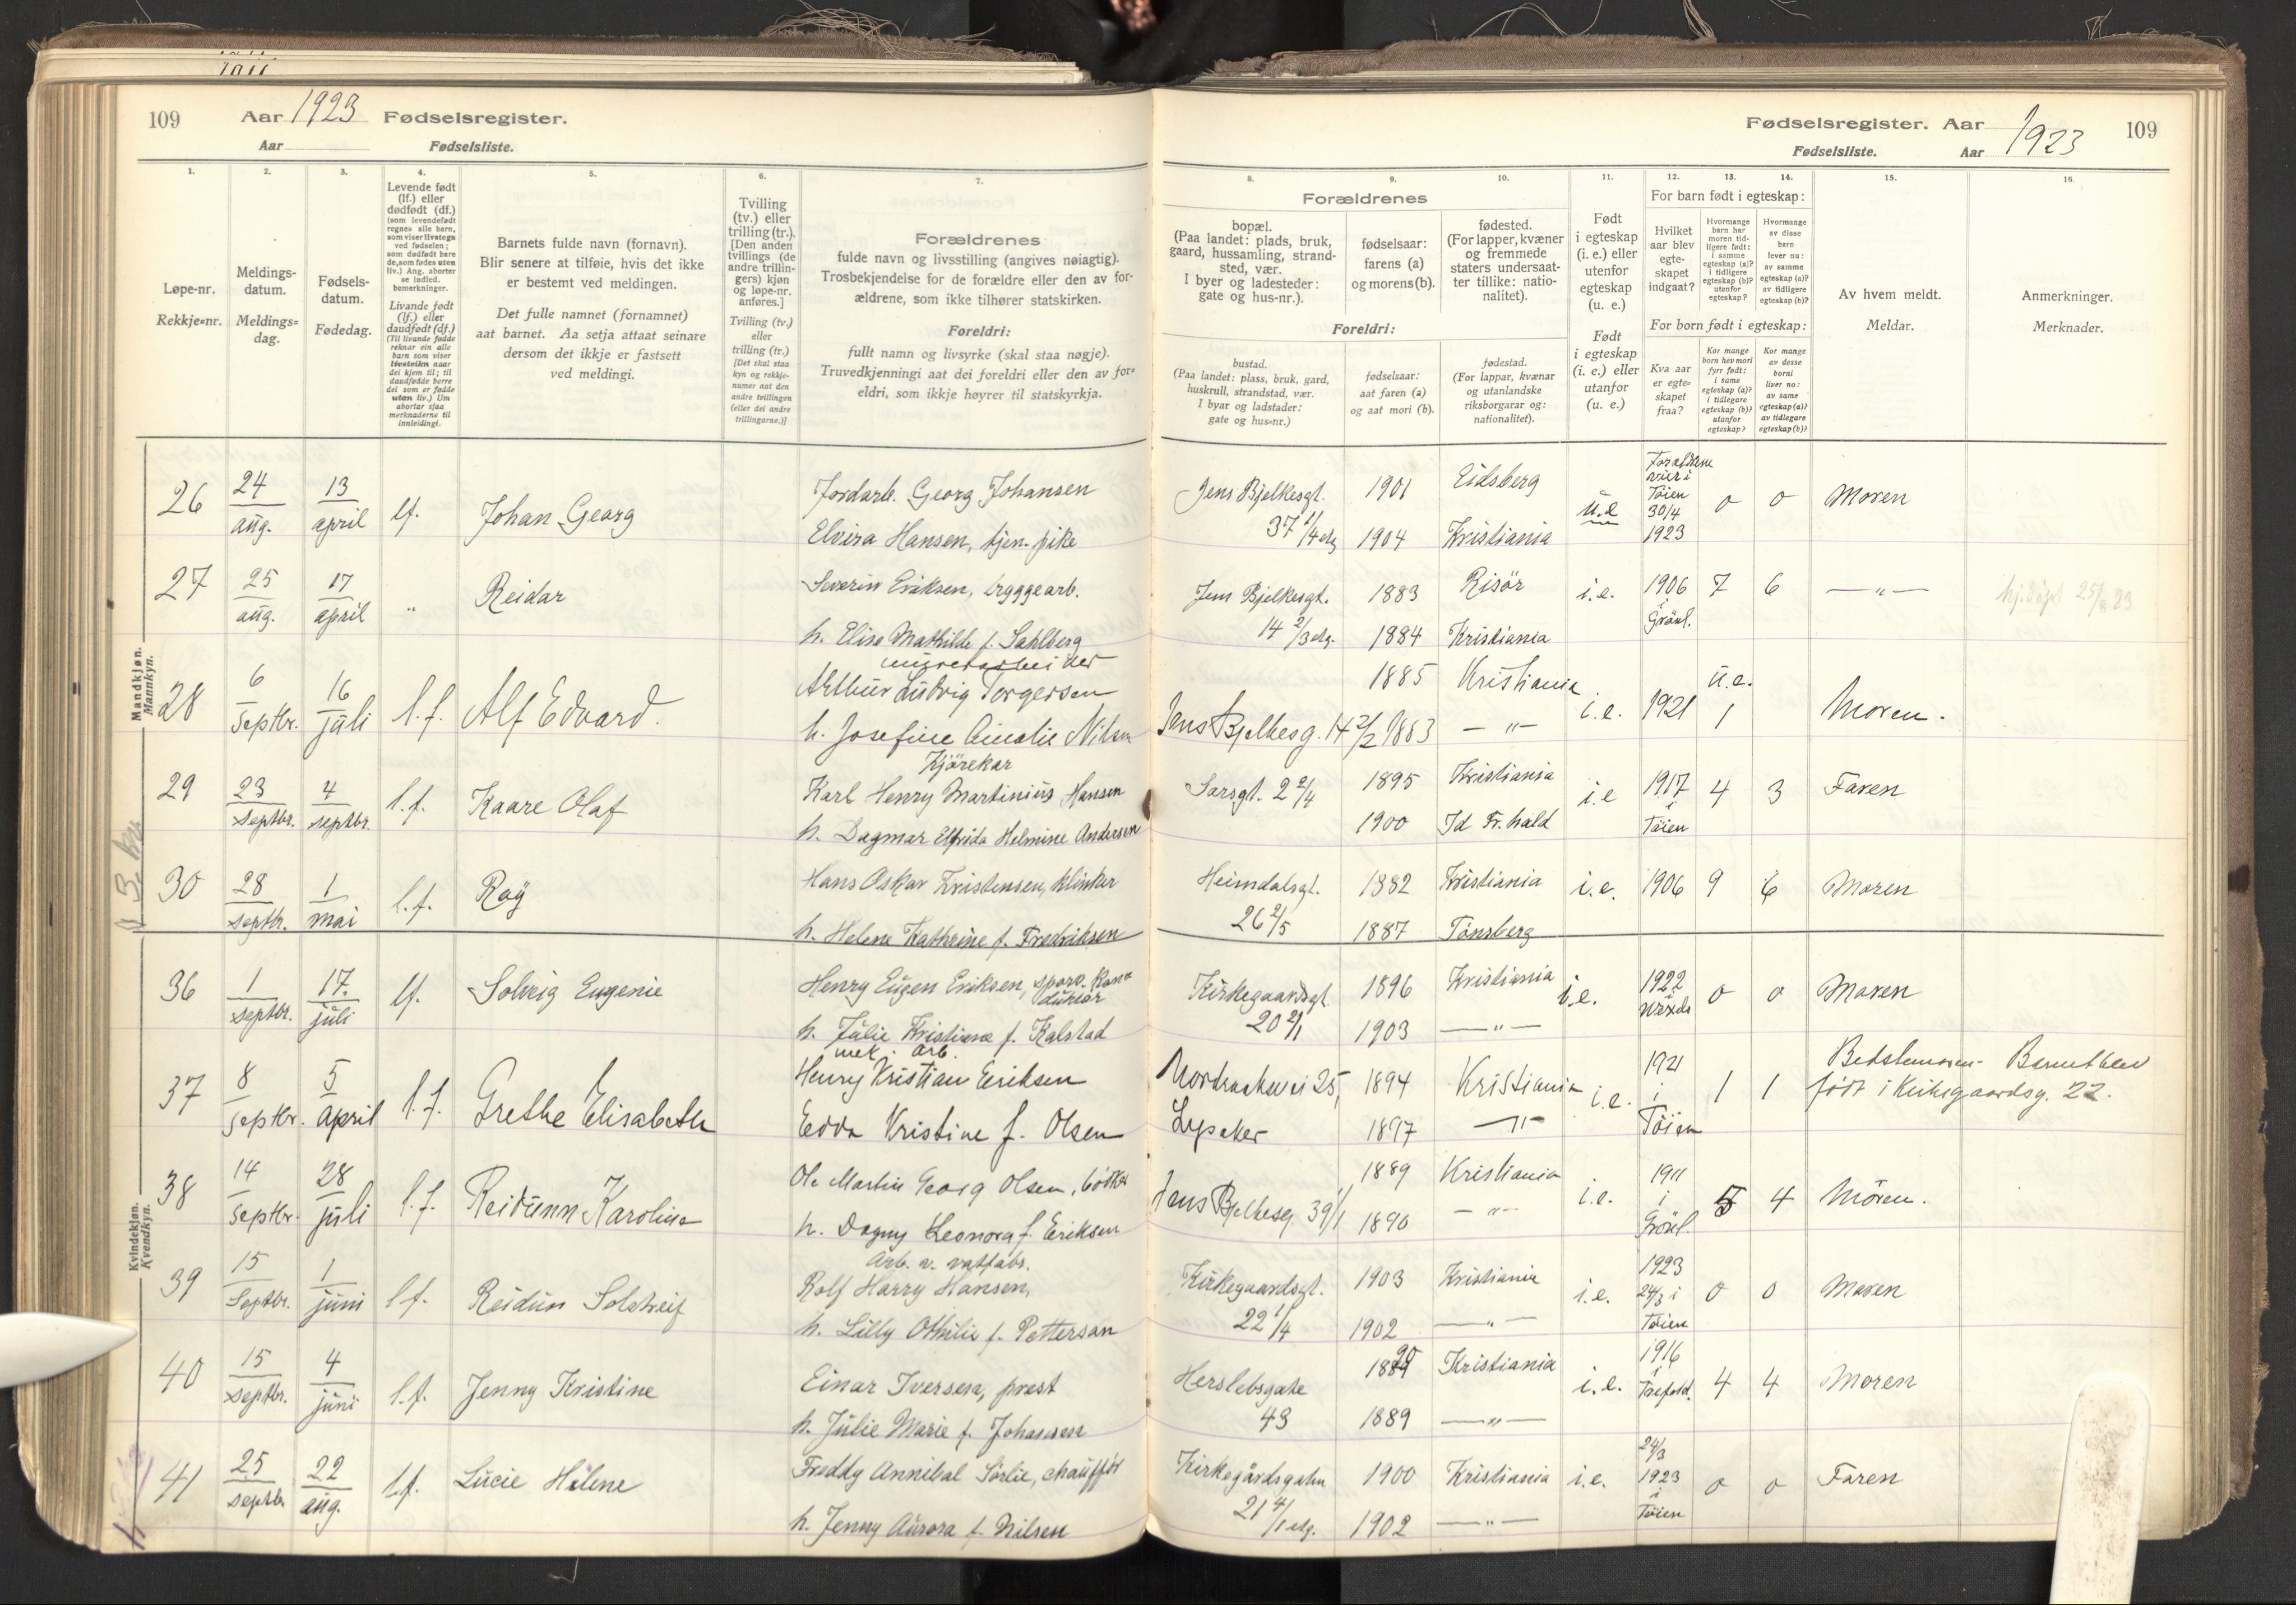 109 Aar 1923 Fødselsregister.
Aar Fødselsliste.
Fødselsregister. Aar 1923 109
Fødselsliste. Aar
1. 2. 3. 4. 5. 6. 7.
Løpe-nr.
Rekkje-nr.
Meldings-
datum.
Meldings-
dag.
Fødsels-
datum.
Fødedag.
Levende født
(lf.) eller
dødfødt (df.)
(som levendefødt
regnes alle barn,
som viser livstegn
ved fødselen;
som dødfødt bare
de, som fødes uten
liv.) Ang. aborter
se indled.
bemerkninger.
Livande født
(lf.) eller
daudfødt (df.)
(Til livande fødde
reknar ein alle
barn som viser
livsteikn naar
dei kjem til; til
daudfødde berre
dei som er fødde
utan liv.) Um
abortar sjaa
merknaderne til
innleidingi.
Barnets fulde navn (fornavn).
Blir senere at tilføie, hvis det ikke
er bestemt ved meldingen.
Det fulle namnet (fornamnet)
aat barnet. Aa setja attaat seinare
dersom det ikkje er fastsett
ved meldingi.
Tvilling
(tv.) eller
trilling (tr.).
[Den anden
tvillings (de
andre trillin-
gers) kjøn
og løpe-nr.
anføres.]
Tvilling (tv.)
eller
trilling (tr.)
[Det skal staa
kyn og rekkje-
numer aat den
andre tvillingen
(eller dei andre
trillingarne.)]
Forældrenes
fulde navn og livsstilling (angives nøiagtig).
Trosbekjendelse for de forældre eller den av for-
ældrene, som ikke tilhører statskirken.
Foreldri:
fullt namn og livsyrke (skal staa nøgje).
Truvedkjenningi aat dei foreldri eller den av for-
eldri, som ikkje høyrer til statskyrkja.
8. 9. 10. 11. 12. 13. 14. 15. 16.
Forældrenes
bopæl.
(Paa landet: plads, bruk,
gaard, hussamling, strand-
sted, vær.
I byer og ladesteder:
gate og hus-nr.).
fødselsaar:
farens (a)
og morens (b).
fødested.
(For lapper, kvæner
og fremmede
staters undersaat-
ter tillike: natio-
nalitet).
Foreldri:
bustad.
(Paa landet: plass, bruk, gard,
huskrull, strandstad, vær.
I byar og ladstader:
gate og hus-nr.)
fødselsaar:
aat faren (a)
og aat mori (b).
fødestad.
(For lappar, kvænar
og utanlandske
riksborgarar og:
nationalitet).
Født
i egteskap
(i. e.) eller
utenfor
egteskap
(u. e.)
Født
i egteskap
(i. e.) eller
utanfor
(u. e.)
For barn født i egteskap:
Hvilket
aar blev
egte-
skapet
indgaat?
Hvormange
barn har
moren tid-
ligere født:
i samme
egteskap (a)?
i tidligere
egteskap (b)?
utenfor
egteskap?
Hvormange
av disse
barn
lever nu:
av samme
egteskap (a)?
av tidligere
egteskap (b)?
For born født i egteskap:
Kva aar
er egte-
skapet
fraa?
Kor mange
born hev mori
fyrr født:
i same
egteskap (a)?
i tidlegare
egteskap (b)?
utanfor
egteskap?
Kor mange
av desse
borni
liver no:
av same
egteskap (a)?
av tidlegare
egteskap (b)?
Av hvem meldt.
Meldar.
Anmerkninger.
Merknader.
Mandkjøn.
Mannkyn.
26 24 aug. 13 april lf. Johan Georg Jordarb. Georg Johansen Jens Bjelkesgt. 1901 Eidsberg u.e Forældrene viet i Tøien 30/4 1923 0 0 Moren
Elvira Hansen, tjen. pike 37 1/4 etg 1904 Kristiania
27 25 aug. 17 april " Reidar Severin Eriksen, bryggearb. Jens Bjelkesgt. 1883 Risør i.e. 1906 i Grønl. 7 6 — " — hj.døpt 25/8 23
h. Elise Mathilde f. Sahlberg 14 2/3 etg. 1884 Kristiania
28 6 septbr. 16 juli l.f. Alf Edvard. murerarbeider
Arthur Ludvig Torgersen 1885 Kristiania i.e. 1921 u.e. 1 Moren.
h. Josefine Amalie Nilsen Jens Bjelkesg. 14 2/2 1883 — " —
29 23 septbr. 4 septbr. l.f. Kaare Olaf Kjørekar
Karl Henry Martinius Hansen Sarsgt. 2 2/4 1895 Kristiania i.e 1917 i Tøien 4 3 Faren
h. Dagmar Elfrida Helmine Andersen 1900 Id Fr.hald
30 28 septbr. 1 mai l.f. Roy Hans Oskar Kristensen, klinker Heimdalsgt. 1882 Kristiania i.e. 1906 9 6 Moren
h. Helene Kathrine f. Fredriksen 26 2/5 1887 Tønsberg
Kvindekjøn.
Kvendkyn.
36 1 septbr. 17. juli lf. Solveig Eugenie Henry Eugen Eriksen, sporv. kon=
duktør Kirkegaardsgt. 1896 Kristiania i.e. 1922 0 0 Moren
h. Julie Kristiane f. Kalstad 20 2/1 1903 — " —
37 8 septbr. 5 april l.f. Grethe Elisabeth mek. arb.
Henry Kristian Eriksen 25, 1894 Kristiania i.e. 1921 i Tøien 1 1 Bestemoren - Barnet blev
født i Kirkegaardsg. 22.
Edda Kristine f. Olsen Lysaker 1897 — " —
38 14 septbr. 28 juli l.f. Reidunn Karoline Ole Martin Georg Olsen, bødker Jens Bjelkesg. 39 1/1 1889 Kristiania i.e. 1911 i Grønl. 5 4 Moren.
h. Dagny Leonora f. Eriksen 1890 — " —
39 15 septbr. 1 juni l.f. Reidun Solstreif Arb. v. vatfabr.
Rolf Harry Hansen, Kirkegaardsgt. 1903 Kristiania i.e. 1923 24/3 i Tøien 0 0 Moren
h. Lilly Othilie f. Petterson 22 1/4 1902 — " —
40 15 septbr. 4 juni l.f. Jenny Kristine Einar Iversen, prest Herslebsgate 90 Kristiania i.e. 1916 i Trefold. 4 4 Moren
h. Julie Marie f. Johannesen 43 1889 — " —
41 25 septb. 22 aug. l.f. Lucie Helene Freddy Annibal Sørlie, chaufför Kirkegårdsgaten 1900 Kristiania i.e. 24/3 1923 i Tøien 0 0 Faren
h. Jenny Aurora f. Nilsen 21 4/1 etg. 1902 — " —